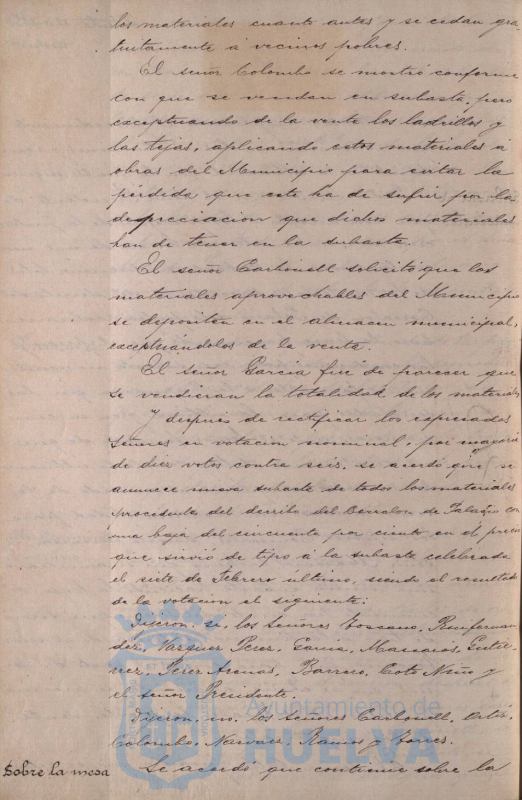 los materiales cuanto antes y se cedan gra-
tuitamente á vecinos pobres.
El señor Colombo se mostró conforme
con que se vendan en subasta, pero
exceptuando de la venta los ladrillos y
las tejas, aplicando estos materiales á
obras del Municipio para evitar la
pérdida que este ha de sufrir por la
depreciacion que dichos materiales
han de tener en la subasta.
El señor Carbonell solicitó que los
materiales aprovechables del Municipio
se depositen en el almacen municipal,
exceptuándolos de la venta.
El señor Garcia fué de parecer que
se vendieran la totalidad de los materiales
Y después de rectificar los expresados
señores en votacion nominal, por mayoría
de diez votos contra seis, se acordó que se
anuncie nueva subasta de todos los materiales
procedente del derribo del de Palacio con
una baja del cincuenta por ciento en el precio
que sirvió de tipo á la subasta celebrada
el siete de Febrero último, siendo el resultado
de la votacion el siguiente:
Dijeron si, los Señores Toscano,
Vazquez Perez, Garcia, Gutie-
rrez, Perez Arenas, Barrero, Coto Niño y
el señor Presidente.
Dijeron, no, los señores Carbonell, Ortiz,
Colombo, Narvaez, Ramos y Torres.
Sobre la mesa Se acordó que continue sobre la
Ayuntamiento de
HUELVA